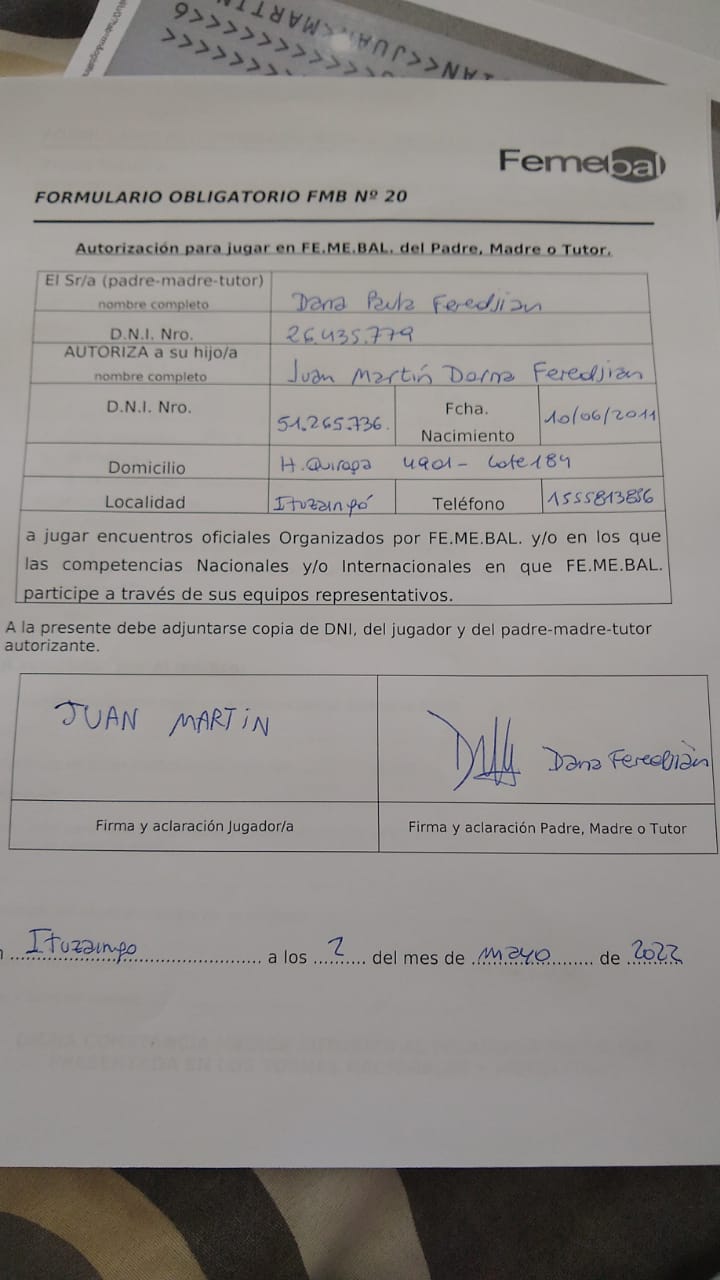 AN<<JUAN<MARTIN
Femebal
FORMULARIO OBLIGATORIO FMB Nº 20
Autorización para jugar en FE.ME.BAL. del Padre, Madre o Tutor.
El Sr/a (padre-madre-tutor)
nombre completo
Dana Paula Feredjian
D.N.I. Nro.
26.435.779
AUTORIZA a su hijo/a
nombre completo
Juan Martín Dorna Feredjian
D.N.I. Nro.
51.265.736.
Fcha.
Nacimiento
10/06/2011
Domicilio
H. Quiroga 4901 - Lote 184
Localidad
Ituzaingó
Teléfono
1555813856
a jugar encuentros oficiales Organizados por FE.ME.BAL. y/o en los que
las competencias Nacionales y/o Internacionales en que FE.ME.BAL.
participe a través de sus equipos representativos.
A la presente debe adjuntarse copia de DNI, del jugador y del padre-madre-tutor
autorizante.
JUAN MARTIN
Dana Feredjian
Firma y aclaración Jugador/a
Firma y aclaración Padre, Madre o Tutor
Ituzaingo a los 2 del mes de mayo de 2022